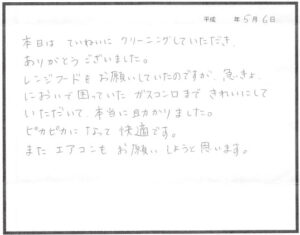 平成　年5月6日
本日は ていねいに クリーニングしていただき、
ありがとうございました。
レンジフードを お願いしていたのですが、急きょ、
においで 困っていた ガスコンロまで きれいにして
いただいて、本当に助かりました。
ピカピカに なって 快適です。
また エアコンも お願い しようと思います。